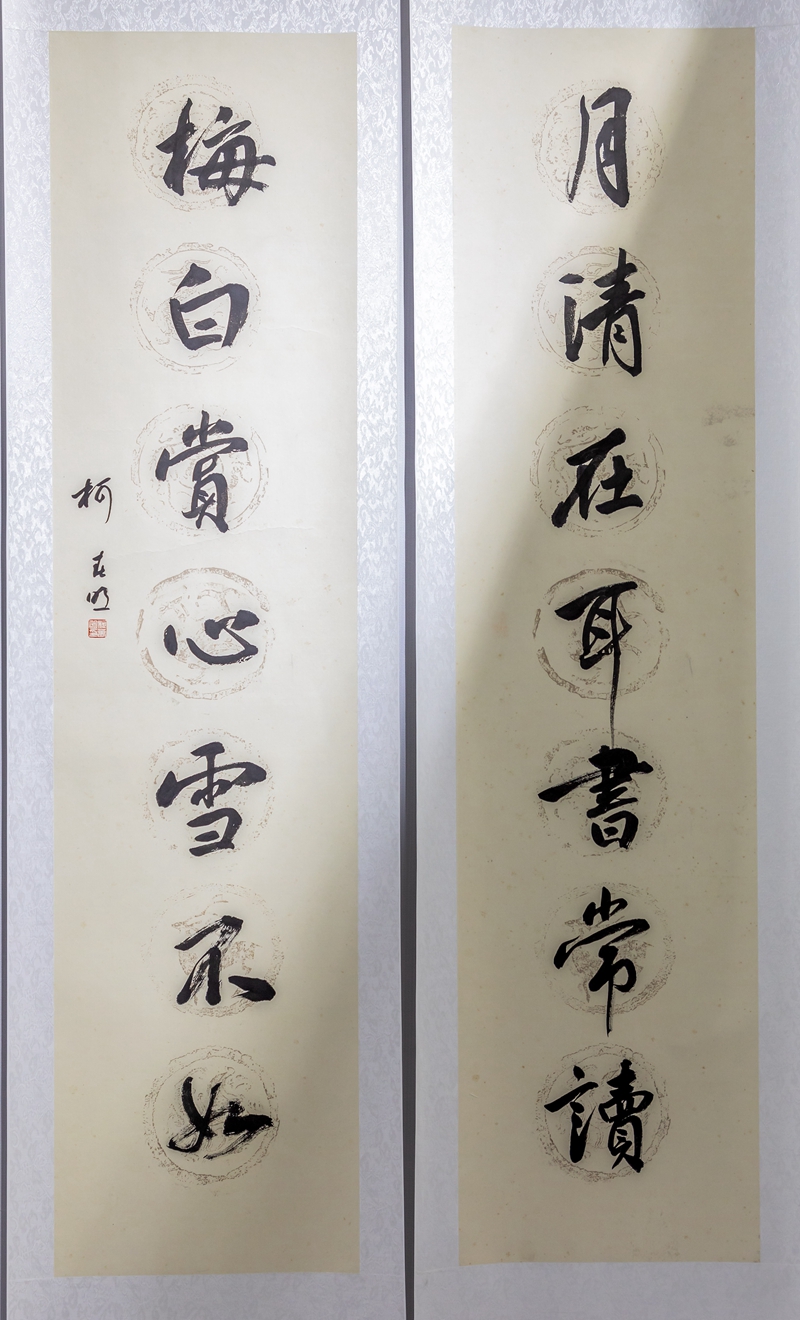 月清在耳書常讀
梅白賞心雪不如
柯春明